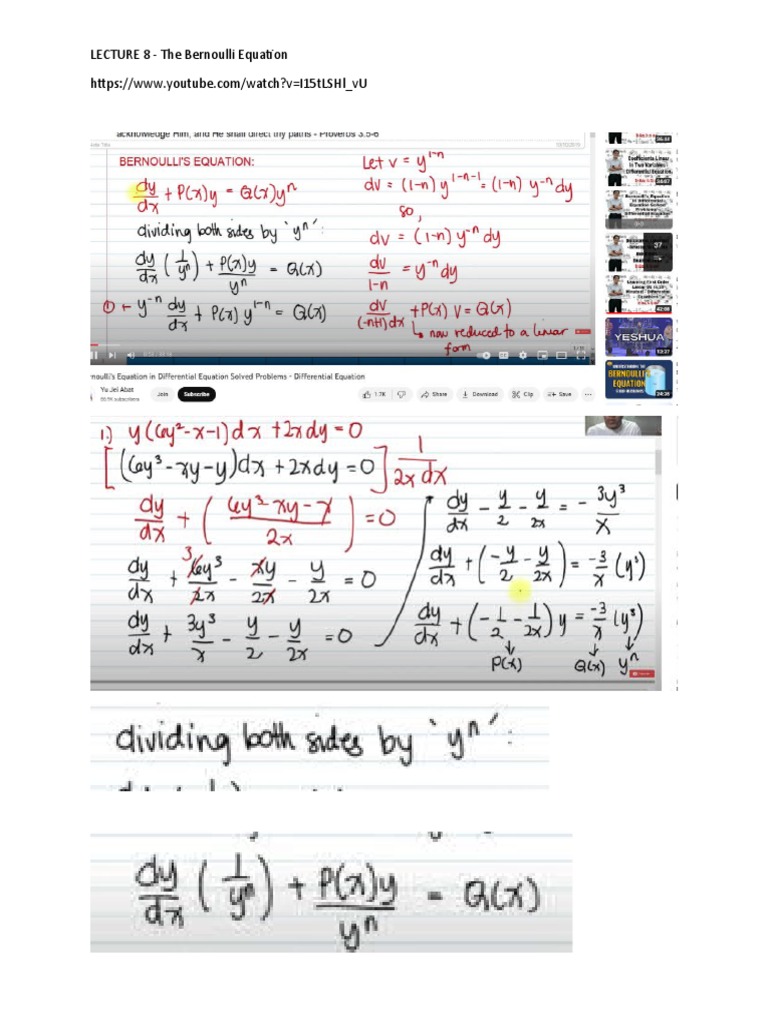 LECTURE 8 - The Bernoulli Equation
https://www.youtube.com/watch?v=I15tLSHl_vU
acknowledge Him, and He shall direct thy paths - Proverbs 3:5-6
BERNOULLI'S EQUATION:
dy/dx + P(x)y = Q(x)yⁿ
dividing both sides by `yⁿ´:
dy/dx (1/yⁿ) + P(x)y/yⁿ = Q(x)
① ← y⁻ⁿ dy/dx + P(x) y¹⁻ⁿ = Q(x)
Let v = y¹⁻ⁿ
dv = (1-n) y¹⁻ⁿ⁻¹ = (1-n) y⁻ⁿ dy
so,
dv = (1-n) y⁻ⁿ dy
dv/1-n = y⁻ⁿ dy
dv/(-n+1)dx + P(x) V = Q(x)
↳ now reduced to a linear
form
YESHUA
BERNOULLI
EQUATION
rnoulli's Equation in Differential Equation Solved Problems - Differential Equation
Yu Jei Abat
Join
Subscribe
1.7K
Share
Download
Clip
Save
...
1.) y(6y²-x-1)dx + 2xdy = 0
[(6y³-xy-y)dx + 2xdy = 0] 1/2x dx
dy/dx + (6y³-xy-y/2x) = 0
dy/dx + 3 6y³/2x - xy/2x - y/2x = 0
dy/dx + 3y³/x - y/2 - y/2x = 0
dy/dx - y/2 - y/2x = - 3y³/x
dy/dx + (-y/2 - y/2x) = -3/x (y³)
dy/dx + (-1/2 - 1/2x) y = -3/x (y³)
P(x) Q(x) yⁿ
dividing both sides by `yⁿ´:
dy/dx (1/yⁿ) + P(x)y/yⁿ = Q(x)